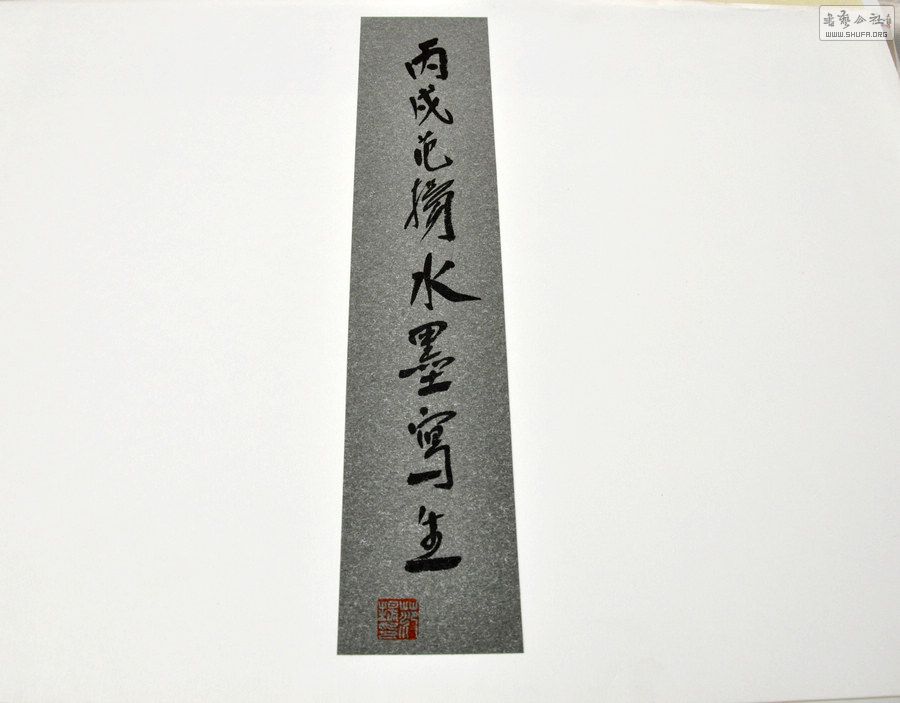 丙戌范揚水墨寫生
書藝公社
WWW.SHUFA.ORG